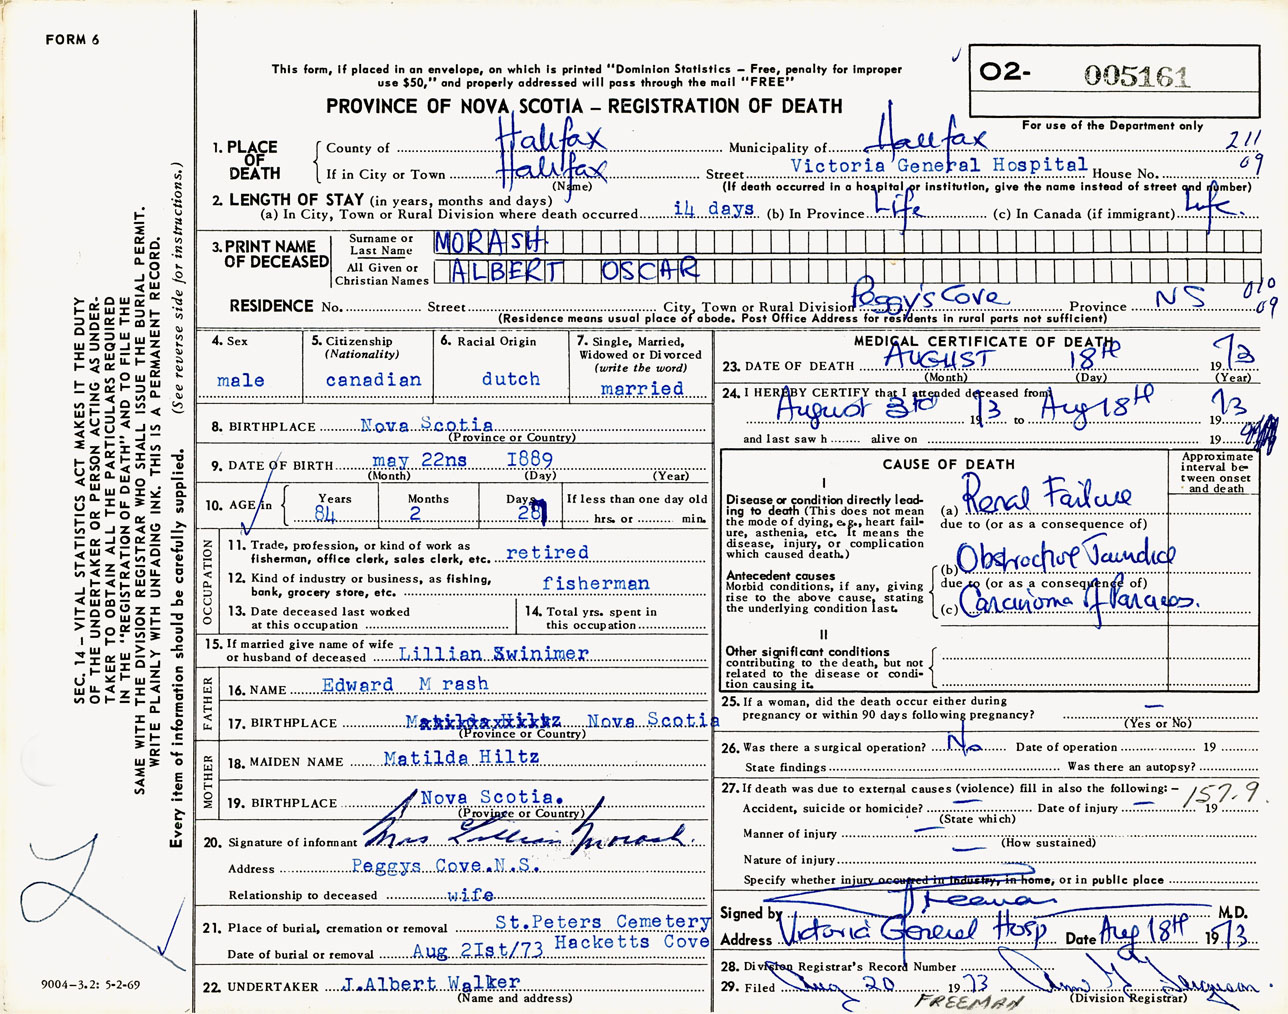 FORM 6
This form, if placed in an envelope, on which is printed "Dominion Statistics – Free, penalty for improper
use $50," and properly addressed will pass through the mail "FREE"
O2- 005161
For use of the Department only
PROVINCE OF NOVA SCOTIA – REGISTRATION OF DEATH
211
09
1. PLACE OF DEATH
County of Halifax Municipality of Halifax
If in City or Town Halifax Street Victoria General Hospital House No.
(Name) (If death occurred in a hospital or institution, give the name instead of street and number)
2. LENGTH OF STAY (in years, months and days)
(a) In City, Town or Rural Division where death occurred 14 days (b) In Province Life (c) In Canada (if immigrant) Life.
3. PRINT NAME OF DECEASED
Surname or Last Name MORASH
All Given or Christian Names ALBERT OSCAR
RESIDENCE No. Street City, Town or Rural Division Peggy's Cove Province NS
010
09
(Residence means usual place of abode. Post Office Address for residents in rural parts not sufficient)
4. Sex
male
5. Citizenship
(Nationality)
canadian
6. Racial Origin
dutch
7. Single, Married,
Widowed or Divorced
(write the word)
married
8. BIRTHPLACE Nova Scotia
(Province or Country)
9. DATE OF BIRTH may 22ns 1889
(Month) (Day) (Year)
10. AGE in
Years Months Days If less than one day old
84 2 28 hrs. or min.
OCCUPATION
11. Trade, profession, or kind of work as
fisherman, office clerk, sales clerk, etc. retired
12. Kind of industry or business, as fishing,
bank, grocery store, etc. fisherman
13. Date deceased last worked
at this occupation
14. Total yrs. spent in
this occupation
15. If married give name of wife
or husband of deceased Lillian Swinimer
FATHER
16. NAME Edward M rash
17. BIRTHPLACE Matilda Hiltz Nova Scotia
(Province or Country)
MOTHER
18. MAIDEN NAME Matilda Hiltz
19. BIRTHPLACE Nova Scotia.
(Province or Country)
20. Signature of informant Mrs Lillian Morash.
Address Peggys Cove.N.S.
Relationship to deceased wife
21. Place of burial, cremation or removal St.Peters Cemetery
Date of burial or removal Aug 21st/73 Hacketts Cove
22. UNDERTAKER J.Albert Walker
(Name and address)
MEDICAL CERTIFICATE OF DEATH
23. DATE OF DEATH AUGUST 18th 1973
(Month) (Day) (Year)
24. I HEREBY CERTIFY that I attended deceased from
August 3rd 1973 to Aug 18th 1973
and last saw h alive on 19
CAUSE OF DEATH
Approximate
interval be-
tween onset
and death
I
Disease or condition directly lead-
ing to death (This does not mean
the mode of dying, e.g., heart fail-
ure, asthenia, etc. It means the
disease, injury, or complication
which caused death.)
(a) Renal Failure
due to (or as a consequence of)
Antecedent causes
Morbid conditions, if any, giving
rise to the above cause, stating
the underlying condition last.
(b) Obstructive Jaundice
due to (or as a consequence of)
(c) Carcinoma of Pancreas.
II
Other significant conditions
contributing to the death, but not
related to the disease or condi-
tion causing it.
25. If a woman, did the death occur either during
pregnancy or within 90 days following pregnancy? –
(Yes or No)
26. Was there a surgical operation? No Date of operation 19
State findings Was there an autopsy?
27. If death was due to external causes (violence) fill in also the following: –
157.9
Accident, suicide or homicide? – Date of injury – 19
(State which)
Manner of injury –
(How sustained)
Nature of injury –
Specify whether injury occurred in industry, in home, or in public place
Signed by Freeman M.D.
Address Victoria General Hosp Date Aug 18th 1973
28. Division Registrar's Record Number
29. Filed Aug 20 1973
(Division Registrar)
FREEMAN
SEC. 14 – VITAL STATISTICS ACT MAKES IT THE DUTY
OF THE UNDERTAKER OR PERSON ACTING AS UNDER-
TAKER TO OBTAIN ALL THE PARTICULARS REQUIRED
IN THE "REGISTRATION OF DEATH" AND TO FILE THE
SAME WITH THE DIVISION REGISTRAR WHO SHALL ISSUE THE BURIAL PERMIT.
WRITE PLAINLY WITH UNFADING INK. THIS IS A PERMANENT RECORD.
Every item of information should be carefully supplied. (See reverse side for instructions.)
9004-3.2: 5-2-69